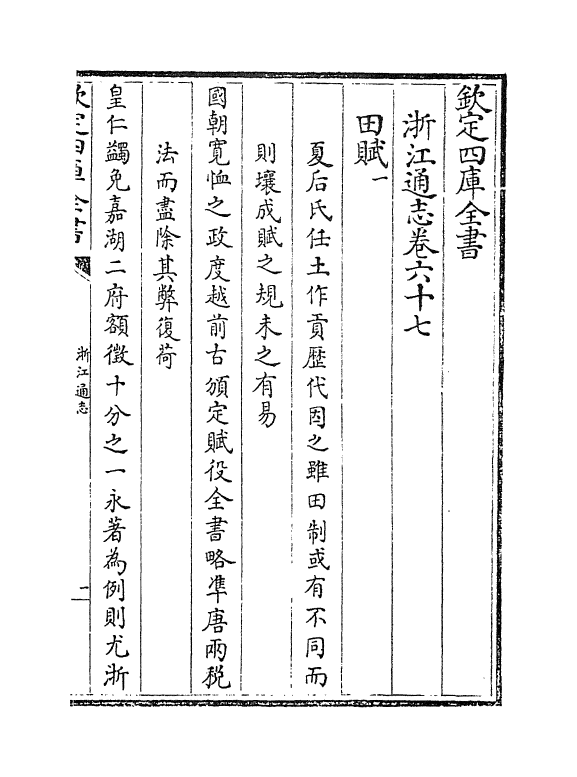 欽定四庫全書
浙江通志卷六十七
田賦一
夏后氏任土作貢歴代因之雖田制或有不同而
則壤成賦之規未之有易
國朝寛恤之政度越前古頒定賦役全書略凖唐兩稅
法而盡除其弊復荷
皇仁蠲免嘉湖二府額徵十分之一永著為例則尤浙
欽定四庫全書
浙江通志
一